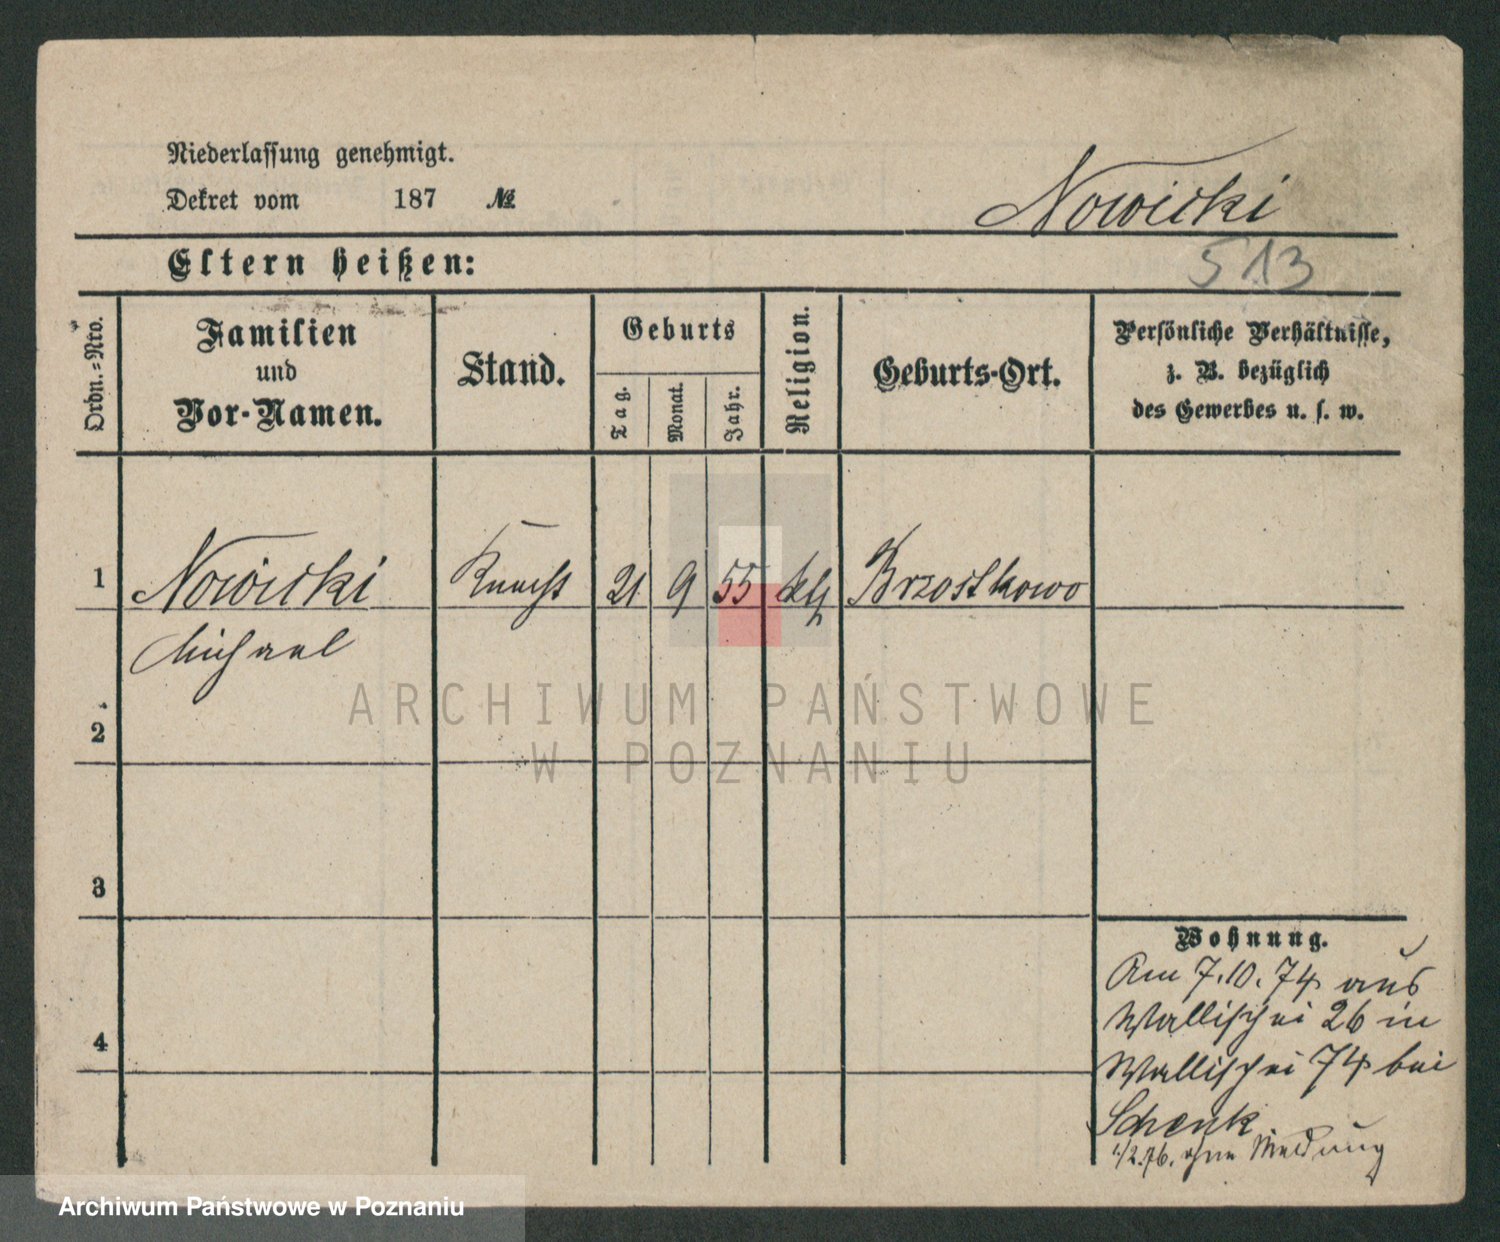 Niederlassung genehmigt.
Dekret vom 187 №
Nowicki
Eltern heißen:
513
Ordn.-Nro.
Familien
und
Vor-Namen.
Stand.
Geburts
Tag.
Monat.
Jahr.
Religion.
Geburts-Ort.
Persönliche Verhältnisse,
z. B. bezüglich
des Gewerbes u. s. w.
1 Nowicki Knecht 21 9 55 kth Brzostkowo
Michael
2
3
4
Wohnung.
Am 7.10.74 aus
Wallischei 26 in
Wallischei 74 bei
Schenk
1/2.76. ohne Meldung
ARCHIWUM PAŃSTWOWE
W POZNANIU
Archiwum Państwowe w Poznaniu